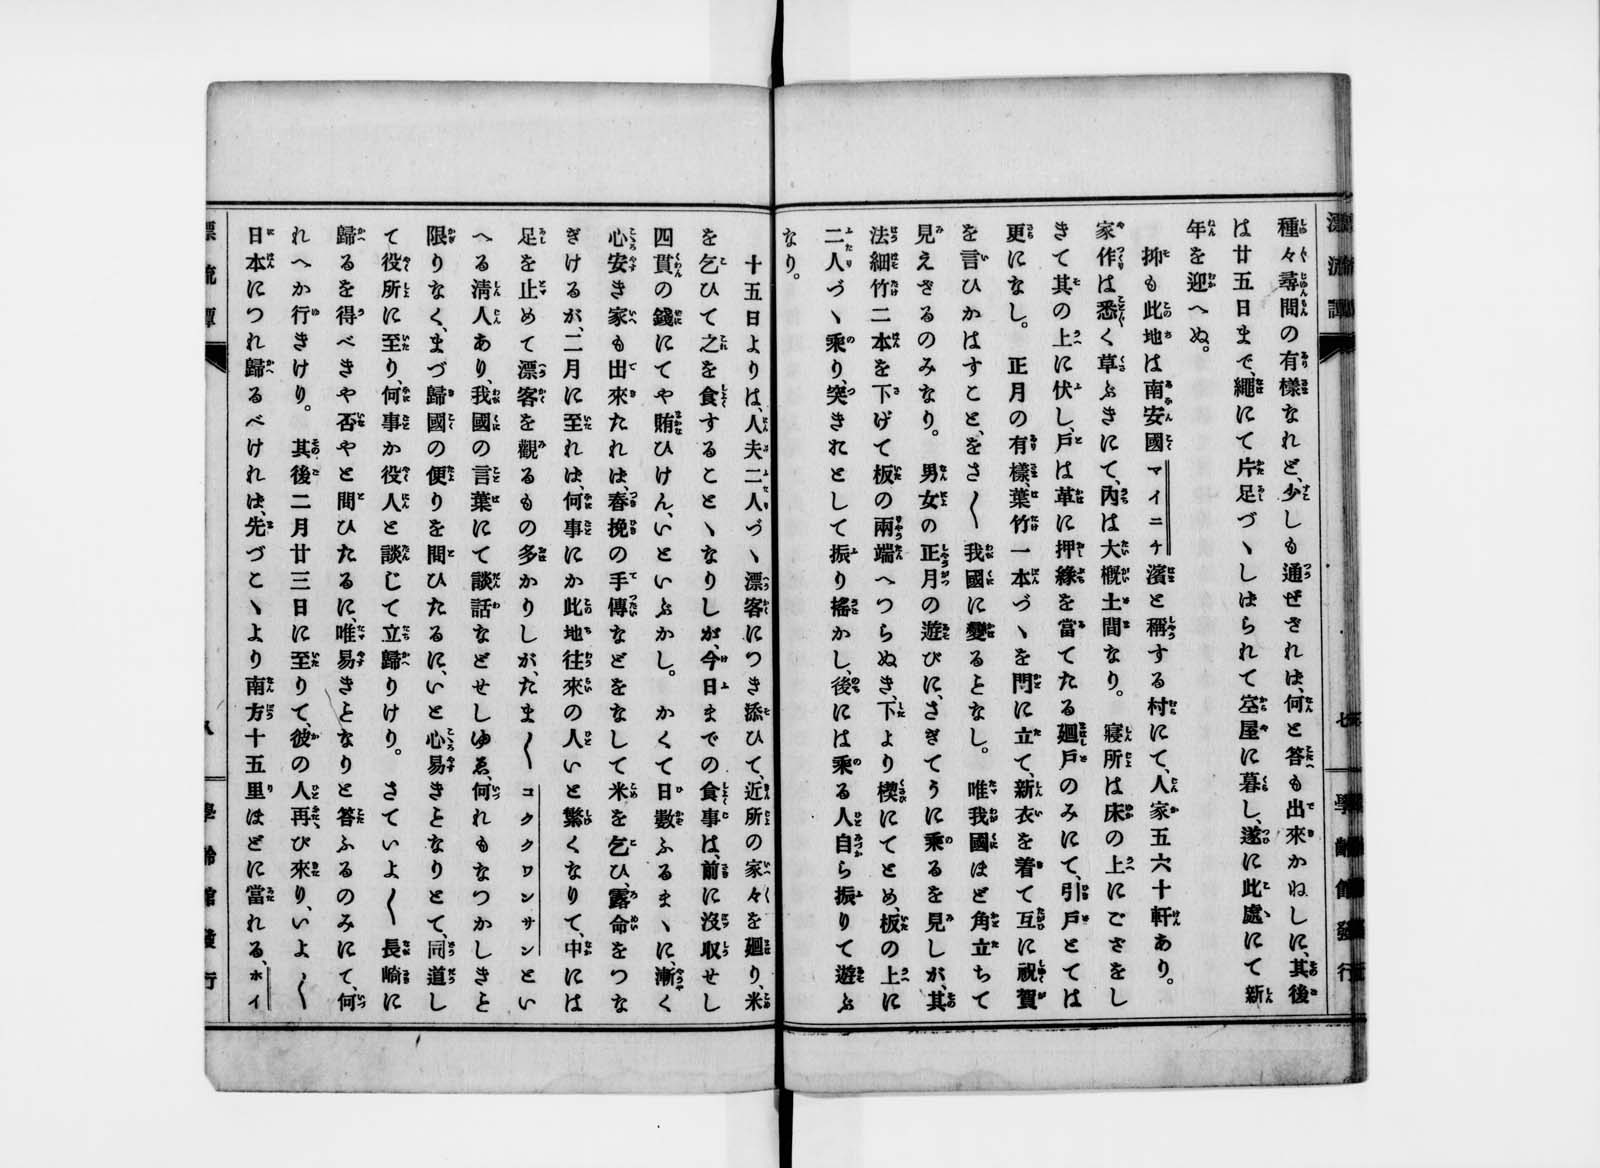 種々尋問の有樣なれど、少しも通ぜざれは、何と答も出來かねしに、其後
は廿五日まで、繩にて片足づヽしはられて空屋に暮し、遂に此處にて新
年を迎へぬ。
抑も此地は南安國マイニケ濱と稱する村にて、人家五六十軒あり。
家作は悉く草ぶきにて、内は大概土間なり。寢所は床の上にござをし
きて其の上に伏し、戸は革に押緣を當てたる廻戸のみにて、引戸とては
更になし。正月の有樣、葉竹一本づヽを門に立て、新衣を着て互に祝賀
を言ひかはすこと、をさ〱我國に變るとなし。唯我國ほど角立ちて
見えざるのみなり。男女の正月の遊びに、さぎてうに乘るを見しが、其
法細竹二本を下げて板の兩端へつらぬき、下より楔にてとめ、板の上に
二人づヽ乘り、突きれとして振り搖かし、後には乘る人自ら振りて遊ぶ
なり。
漂流譚
七
學齡館發行
十五日よりは、人夫二人づヽ漂客につき添ひて、近所の家々を廻り、米
を乞ひて之を食することヽなりしが、今日までの食事は、前に沒收せし
四貫の錢にてや賄ひけん、いといぶかし。かくて日數ふるまヽに、漸く
心安き家も出來たれは、舂挽の手傳などをなして米を乞ひ、露命をつな
ぎけるが、二月に至れは、何事にか此地往來の人いと繁くなりて、中には
足を止めて漂客を觀るもの多かりしが、たま〱コククワンサンとい
へる淸人あり、我國の言葉にて談話などせしゆゑ、何れもなつかしきと
限りなく、まづ歸國の便りを問ひたるに、いと心易きとなりとて、同道し
て役所に至り、何事か役人と談じて立歸りけり。さていよ〱長崎に
歸るを得べきや否やと問ひたるに、唯易きとなりと答ふるのみにて、何
れへか行きけり。其後二月廿三日に至りて、彼の人再び來り、いよ〱
日本につれ歸るべけれは、先づこヽより南方十五里ほどに當れる、ホイ
漂流譚
八
學齡館發行